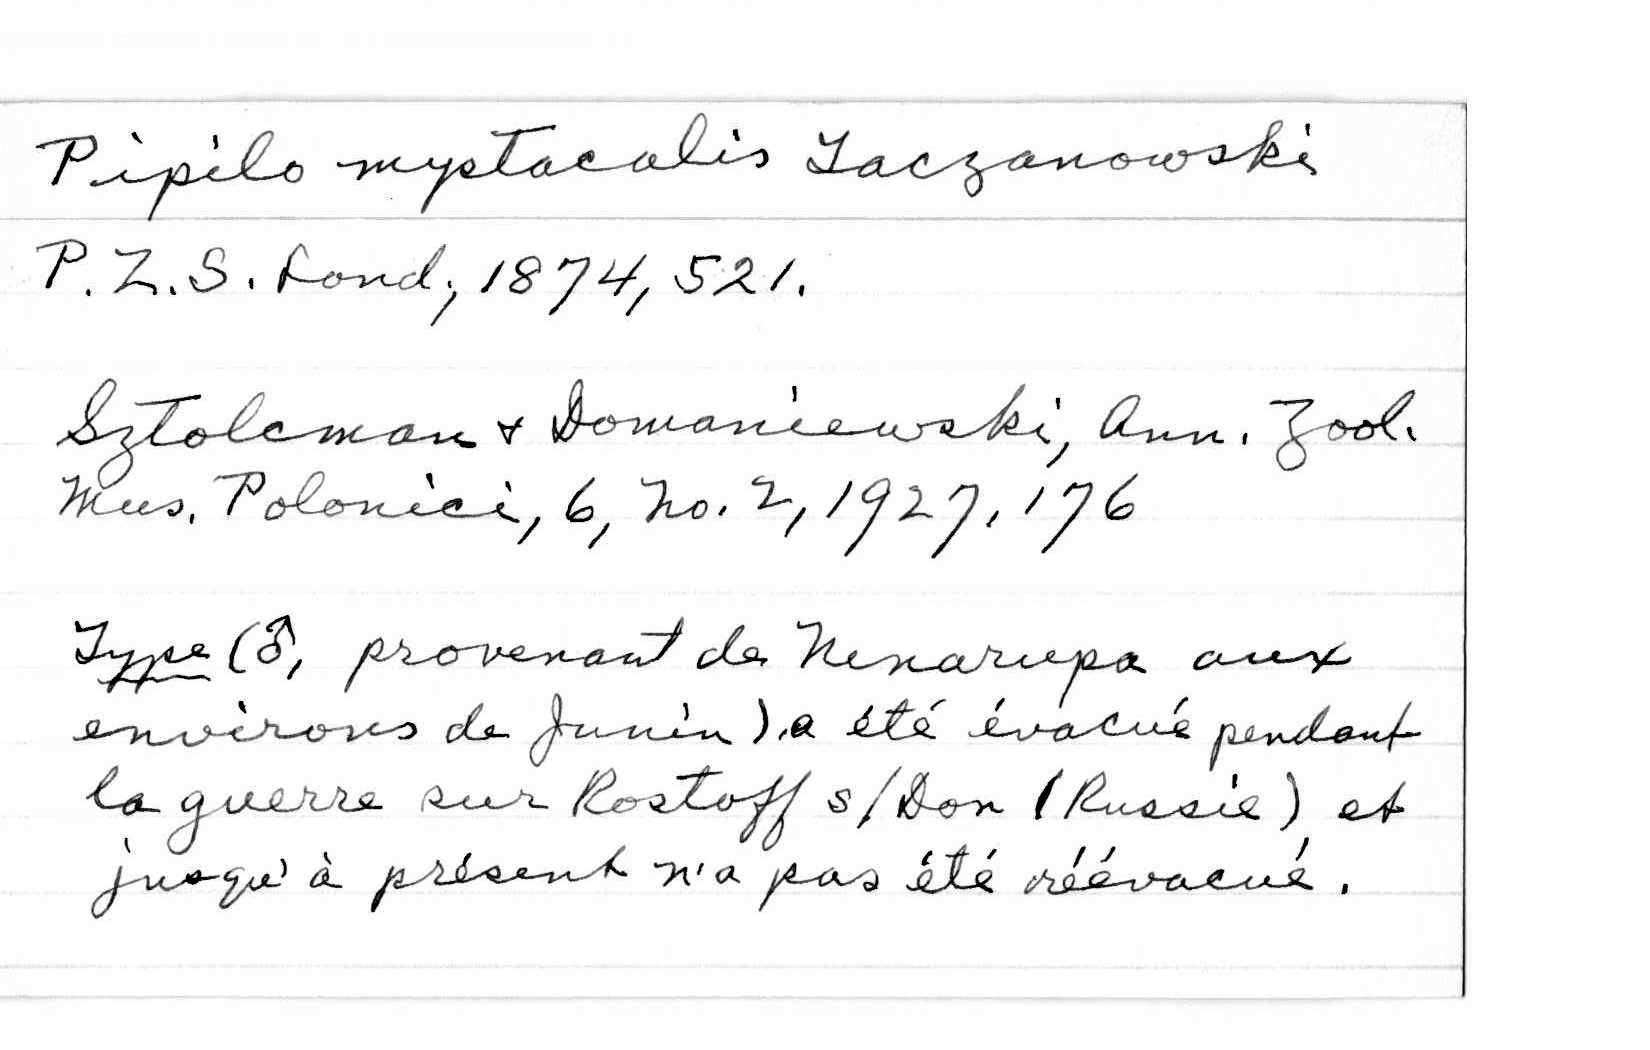 Pipilo mystacalis Taczanowski
P.Z.S. Lond, 1874, 521.
Sztolcman & Domaniewski, Ann. Zool.
Mus. Polonici, 6, No. 2, 1927, 176
Type (♂, provenant de Nenarupa aux
environs de Junin), a été évacué pendant
la guerre sur Rostoff s/Don (Russie) et
jusqu'à présent n'a pas été réévacué.